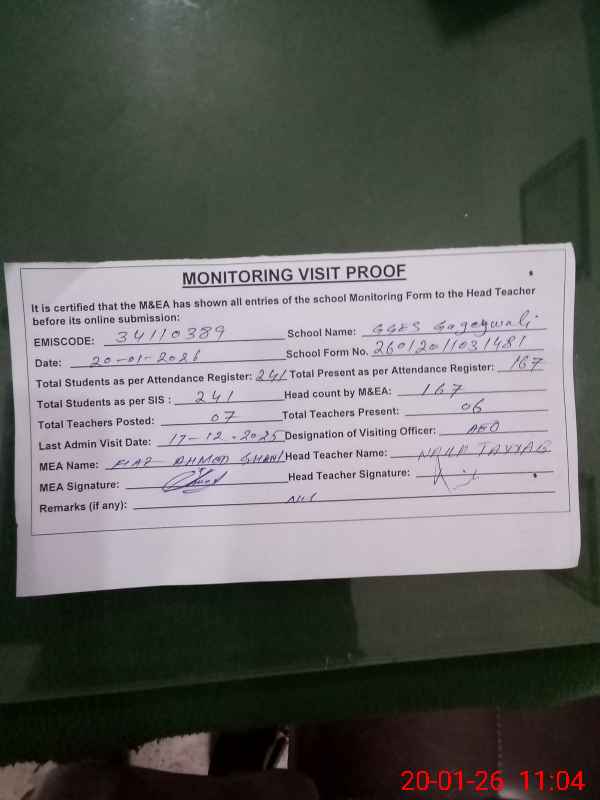 MONITORING VISIT PROOF
It is certified that the M&EA has shown all entries of the school Monitoring Form to the Head Teacher
before its online submission:
EMISCODE: 34110389 School Name: GGES Gageywali
Date: 20-01-2026 School Form No. 2601201103 1481
Total Students as per Attendance Register: 241 Total Present as per Attendance Register: 167
Total Students as per SIS : 241 Head count by M&EA: 167
Total Teachers Posted: 07 Total Teachers Present: 06
Last Admin Visit Date: 17-12-2025 Designation of Visiting Officer: AEO
MEA Name: AHMED GHANI Head Teacher Name: TAYYAB
MEA Signature: Head Teacher Signature:
Remarks (if any): Nil
20-01-26 11:04